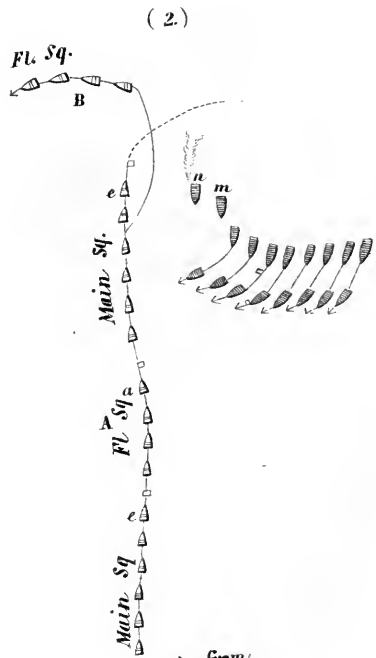 (2.)
Fl. Sq.
B
e
n
m
Main Sq.
a
A
Fl Sq
e
Main Sq